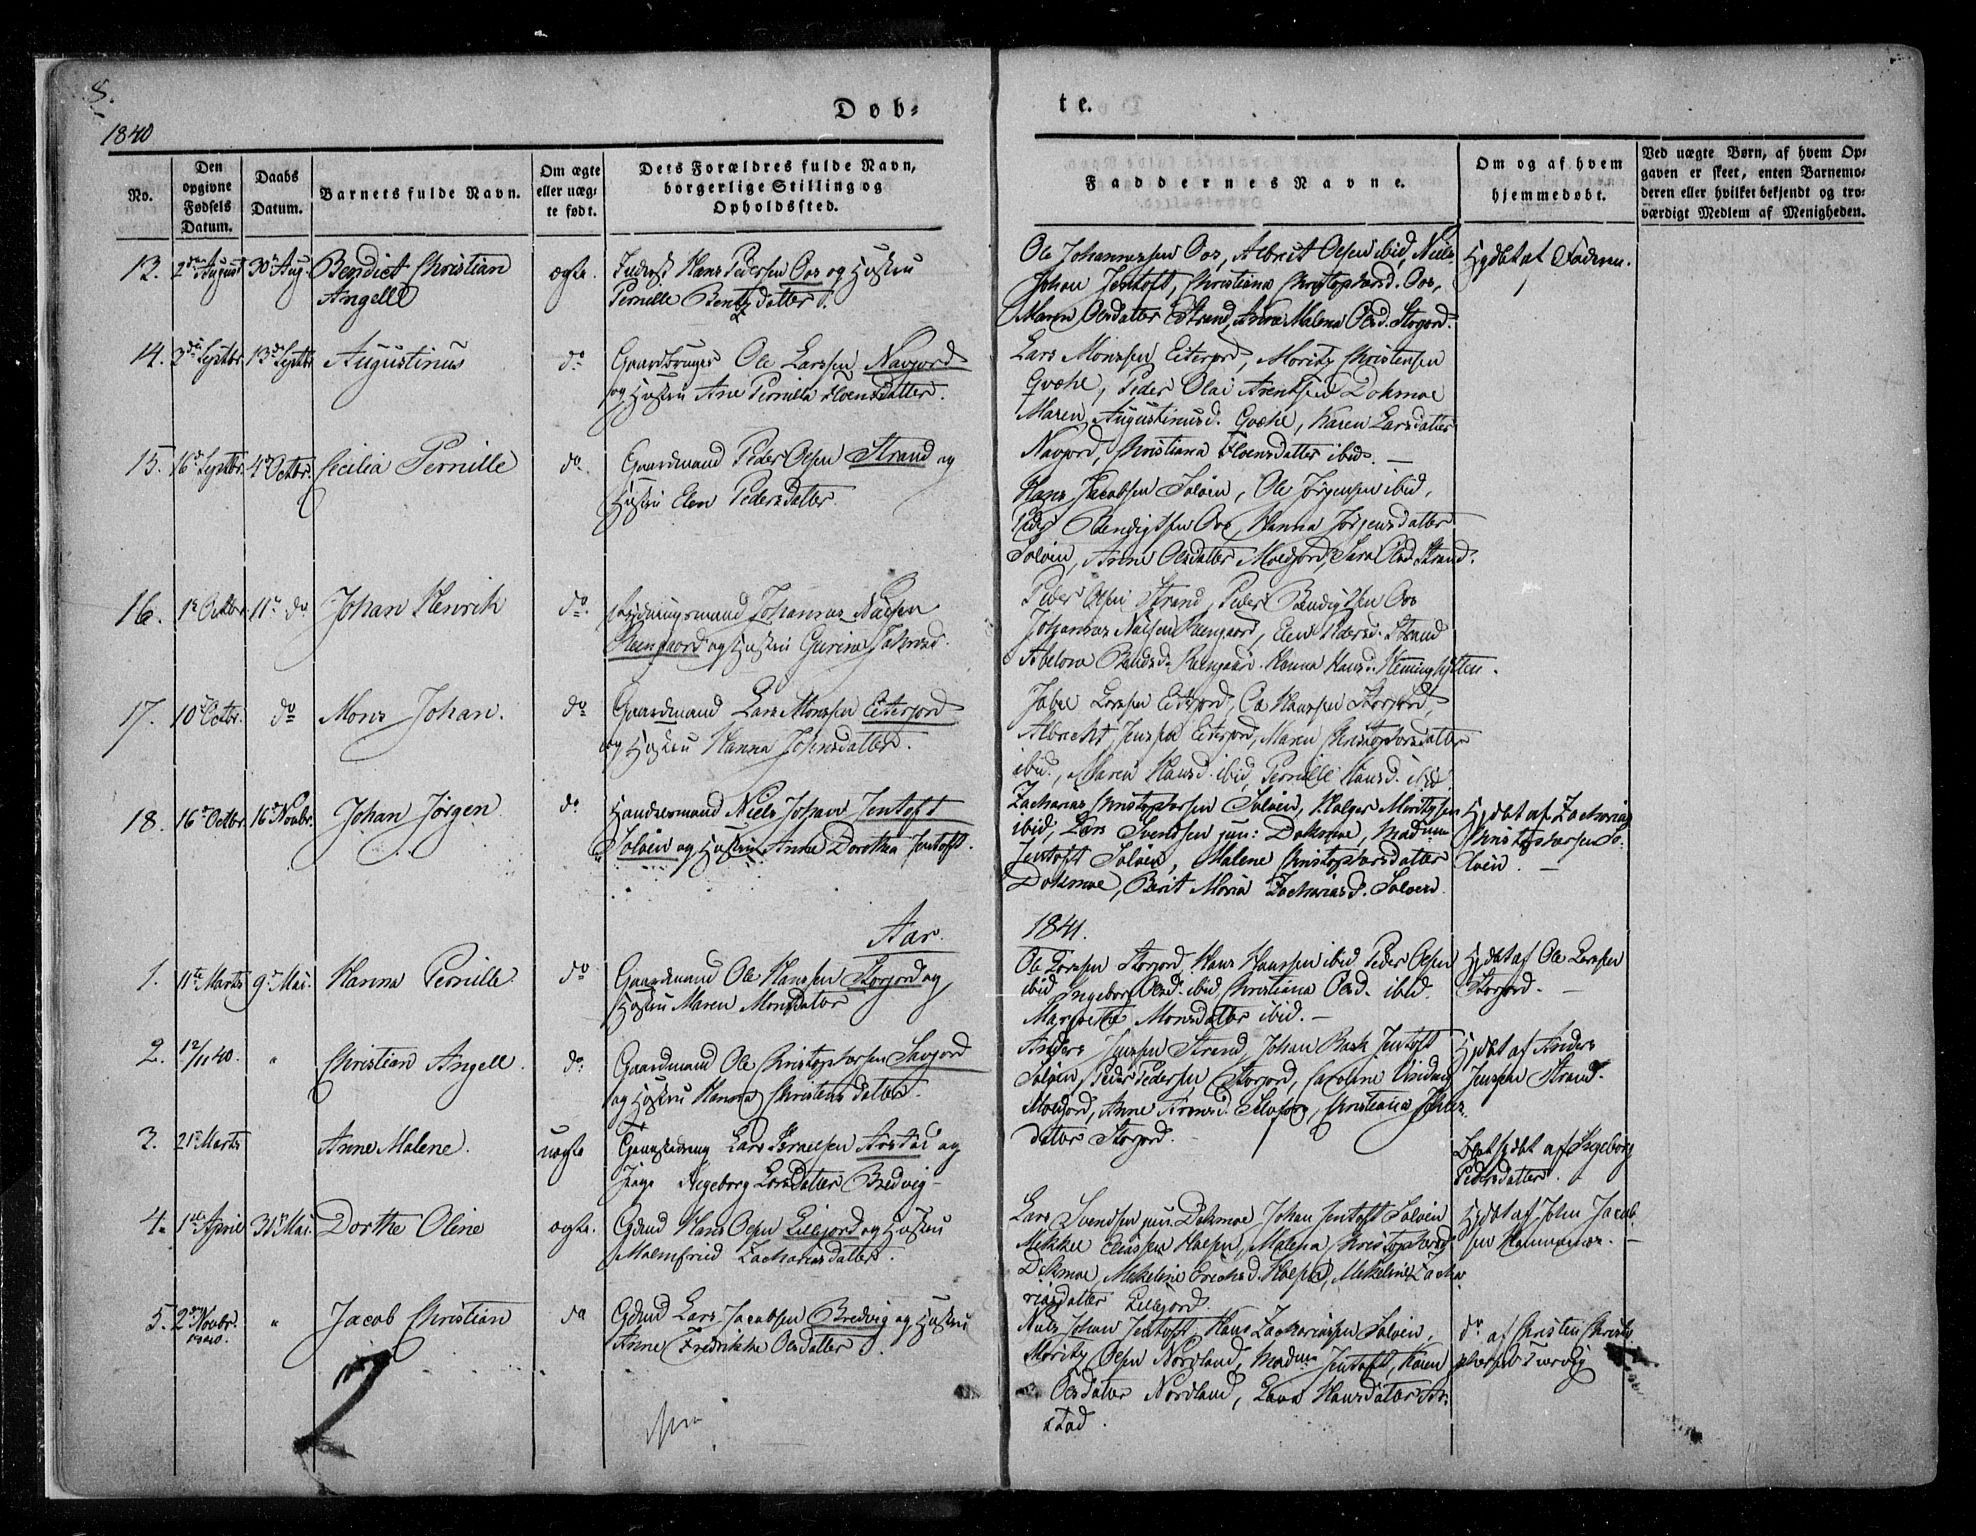 8.
1840
Døb-
te.
No.
Den
opgivne
Fødsels
Datum.
Daabs
Datum.
Barnets fulde Navn.
Om ægte
eller uæg-
te født.
Dets Forældres fulde Navn,
borgerlige Stilling og
Opholdssted.
Faddernes Navne.
Om og af hvem
hjemmedøbt.
Ved uægte Børn, af hvem Op-
gaven er skeet, enten Barnemo-
deren eller hvilket bekjendt og tro-
værdigt Medlem af Menigheden.
13. 2den August 30te Aug. Bendict Christian
Angell
ægte.
Hans Pedersen Oos og Hustru
Pernille Bentsdatter.
Ole Johannessen Oos, Albrit Olsen ibid, Niels
Johan Jentoft, Christiana Christophersd. Oos,
Maren Olsdatter Strand, Anna Malena Olsd. Storjord.
Hjdøbt af Faderen.
14. 3die Septbr. 13de Septbr Augustinus
do
Gaardbruger Ole Larssen Navjord
og Hustru Ane Pernilla Floensdatter.
Lars Monssen Eiterjord, Moritz Christensen
Gvæhe, Peder Olai Arentsen Dokmoe
Maren Augustinusd. Gvæhe, Karen Larsdatter
Navjord, Christiana Floensdatter ibid. —
15. 16de Septbr. 4de Octbr. Cecilia Pernille
do.
Gaardmand Peder Olsen Strand og
Hustru Elen Pedersdatter
Hans Jacobsen Soløen, Ole Jørgensen ibid,
Bendigtsen Oos, Hanna Jørgensdatter
Soløen, Anne Olsdatter Moldjord, Sara Olsd. Strand.
16. 1te Octbr. 11te do Johan Henrik
do.
Johannes Nilsen
Reengaard og Hustru Gurine
Peder Olsen Strand, Peder Bendigtsen Oos
Johannes Nilsen Reengaard, Elen Pedersd. Strand
Hanna Hansd.
17. 10de Octbr. do Mons Johan.
do
Gaardmand Lars Monssen Eiterjord
og Hustru Hanna Johnsdatter.
Larssen Eiterjord, Ole Hanssen Storjord,
Albrecht Jenssen Eiterjord, Maren Christophersdatter
ibid., Maren Hansd. ibid, Pernille Hansd. ibid
18. 16de Octbr. 16de Novbr. Johan Jørgen
do
Handelsmand Niels Johan Jentoft
Soløen og Hustru Anne Dorothea Jentoft.
Zacharias Christophersen Soløen, Holger Moritzsen
ibid, Lars Svendsen jun: Dokmoe, Madam
Jentoft Soløen, Malene Christophersdatter
Dokmoe, Berit Maria Zachariasd. Soløen.
Hjdøbt af Zacharias
Christophersen So-
løen. —
Aar
1841.
1. 11te Marts 9de Mai. Hanna Pernille
do
Gaardmand Ole Hanssen Storjord og
Hustru Maren Monsdatter
Ole Larssen Storjord, Hans Hanssen ibid Peder Olsen
ibid Ingeborg Olsd. ibid, Christiana Olsd. ibid.
Margrethe Monsdatter ibid. —
Hjdøbt af Ole Larssen
Storjord. —
2. 12/11 40. " Christian Angell.
do
Gaardmand Ole Christophersen Savjord
og Hustru Hanna Christensdatter.
Anders Jenssen Strand, Johan Bask Jentoft
Soløen, Peder Pedersen Storjord, Caroline
Moldjord, Anne Christiana
datter Storjord.
Hjdøbt af Anders
Jenssen Strand.
3. 21de Marts Anne Malene.
uægte
Lars Israelsen Arstad og
Pige Ingeborg Larsdatter Bredvig
Hjdøbt af Ingeborg
Pedersdatter.
4. 1ste April 31te Mai. Dorthe Oline
ægte.
Gdmd Hans Olsen Lillejord og Hustru
Malmfried Zachariasdatter.
Lars Svendsen jun. Dokmoe, Johan Jentoft Soløen
Mikkel Eliassen Malena Christophersd.
Dokmoe, Mekeline Erichsd. Mekeline Zacha-
riasdatter Lillejord.
Hjdøbt af John Jacob-
sen
5. 2den Novbr. " Jacob Christian
1840.
do
Gdmd Lars Jacobsen Bredvig og Hustru
Anne Fredrikke Olsdatter
Niels Johan Jentoft, Hans Zachariassen Soløen,
Moritz Olsen Nordland, Madam Jentoft, Karen
Olsdatter Nordland, Hansdatter Ar-
stad.
do af Christen Christo-
phersen
2